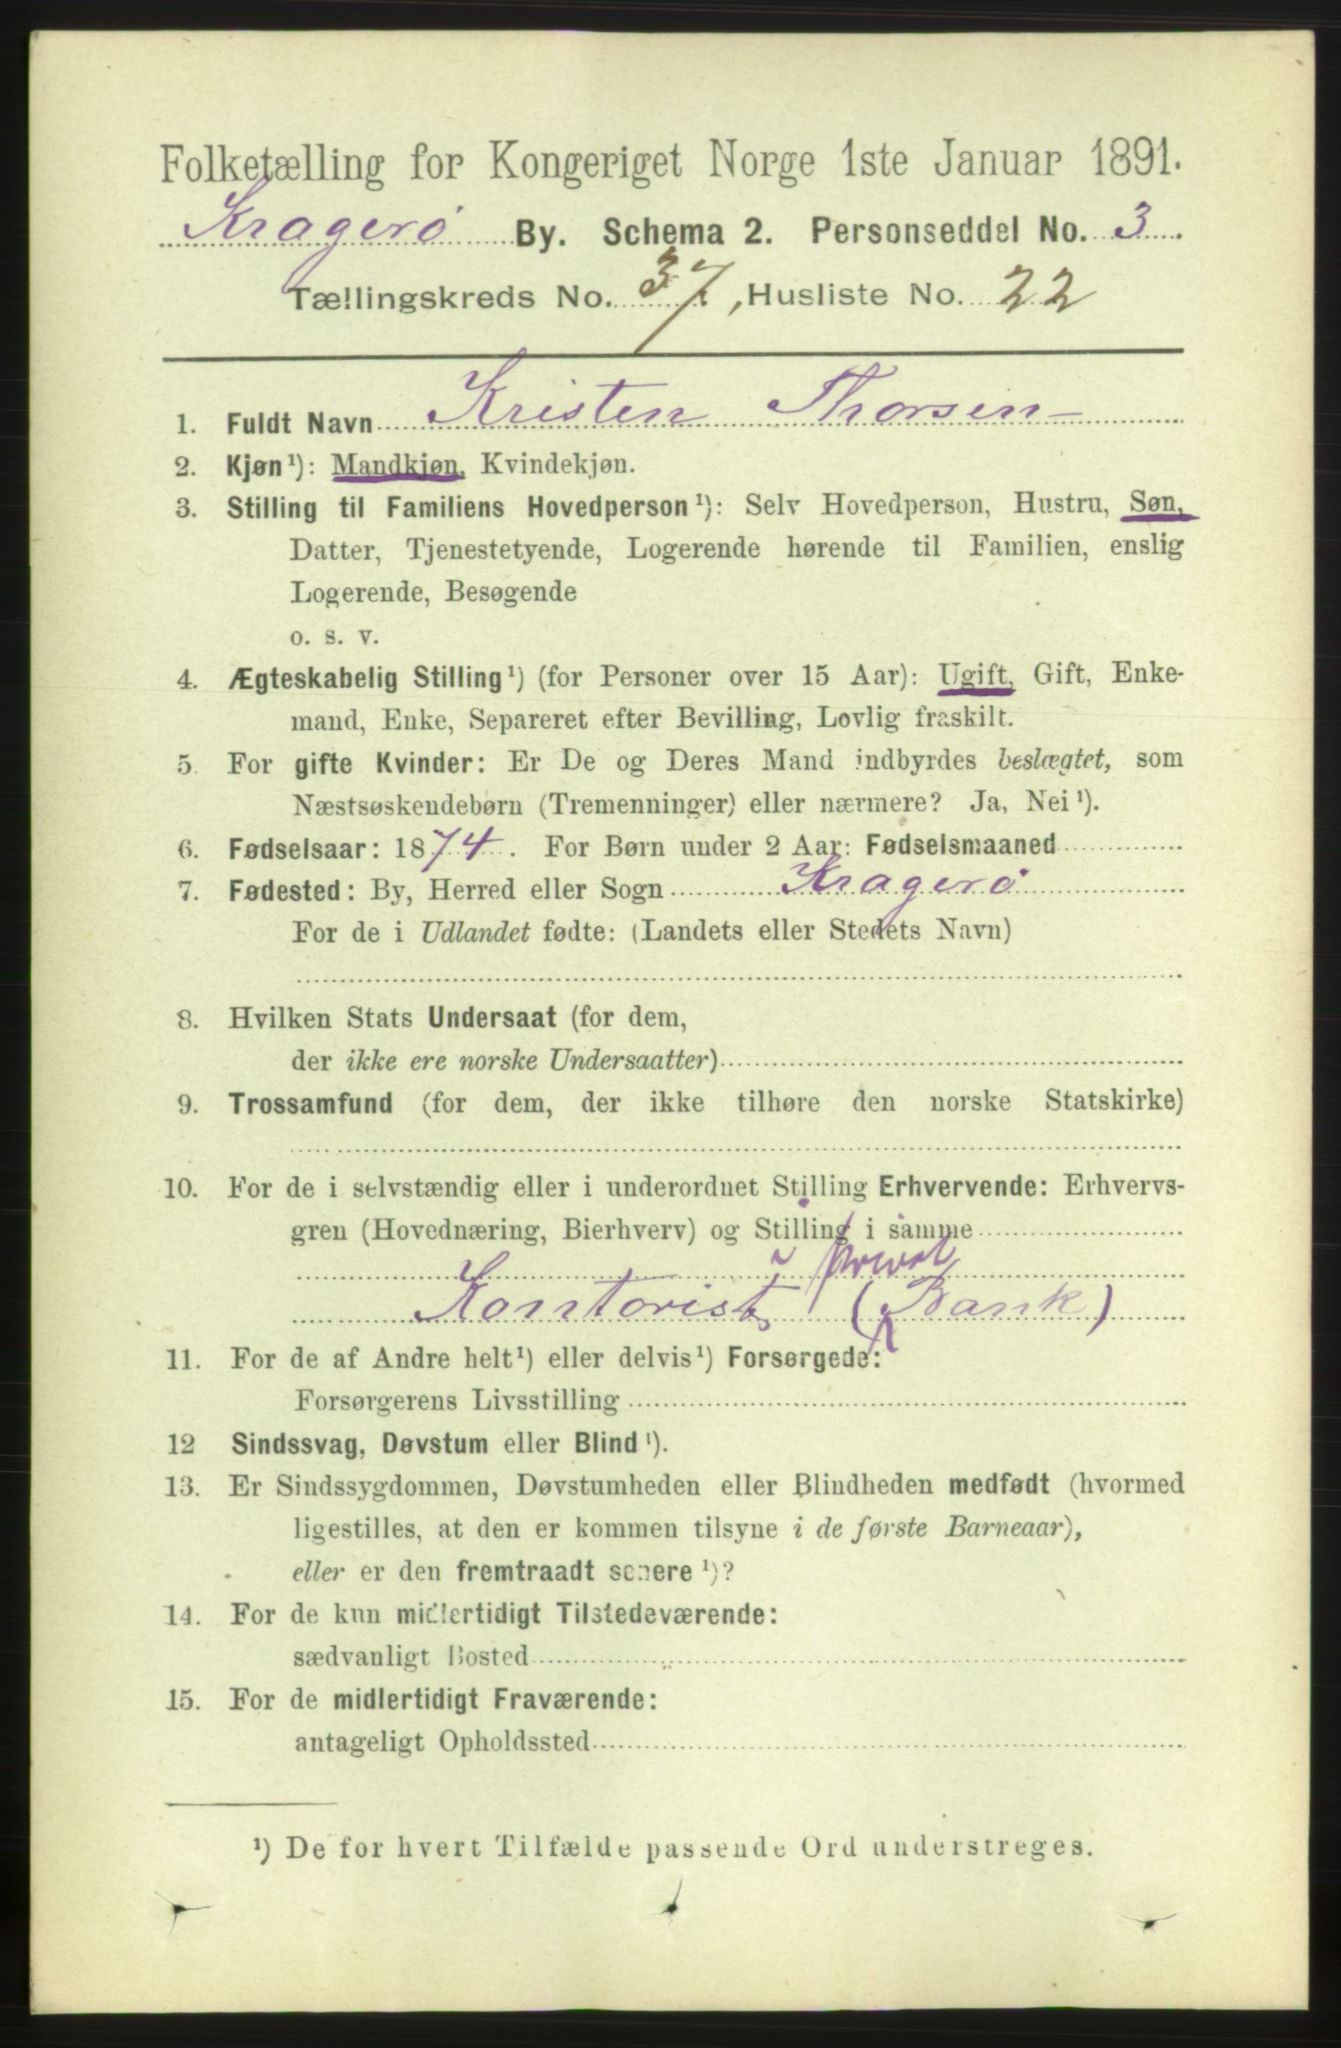 Folketælling for Kongeriget Norge 1ste Januar 1891.
Kragerø By. Schema 2. Personseddel No. 3.
Tællingskreds No. 37, Husliste No. 22
1. Fuldt Navn Kristen Thorsen
2. Kjøn¹): Mandkjøn, Kvindekjøn.
3. Stilling til Familiens Hovedperson¹): Selv Hovedperson, Hustru, Søn,
Datter, Tjenestetyende, Logerende hørende til Familien, enslig
Logerende, Besøgende
o. s. v.
4. Ægteskabelig Stilling¹) (for Personer over 15 Aar): Ugift, Gift, Enke-
mand, Enke, Separeret efter Bevilling, Lovlig fraskilt.
5. For gifte Kvinder: Er De og Deres Mand indbyrdes beslægtet, som
Næstsøskendebørn (Tremenninger) eller nærmere? Ja, Nei¹).
6. Fødselsaar: 1874. For Børn under 2 Aar: Fødselsmaaned
7. Fødested: By, Herred eller Sogn Kragerø
For de i Udlandet fødte: (Landets eller Stedets Navn)
8. Hvilken Stats Undersaat (for dem,
der ikke ere norske Undersaatter)
9. Trossamfund (for dem, der ikke tilhøre den norske Statskirke)
10. For de i selvstændig eller i underordnet Stilling Erhvervende: Erhvervs-
gren (Hovednæring, Bierhverv) og Stilling i samme
privat
Kontorist (Bank)
11. For de af Andre helt¹) eller delvis¹) Forsørgede:
Forsørgerens Livsstilling
12 Sindssvag, Døvstum eller Blind¹).
13. Er Sindssygdommen, Døvstumheden eller Blindheden medfødt (hvormed
ligestilles, at den er kommen tilsyne i de første Barneaar),
eller er den fremtraadt senere¹)?
14. For de kun midlertidigt Tilstedeværende:
sædvanligt Bosted
15. For de midlertidigt Fraværende:
antageligt Opholdssted
¹) De for hvert Tilfælde passende Ord understreges.